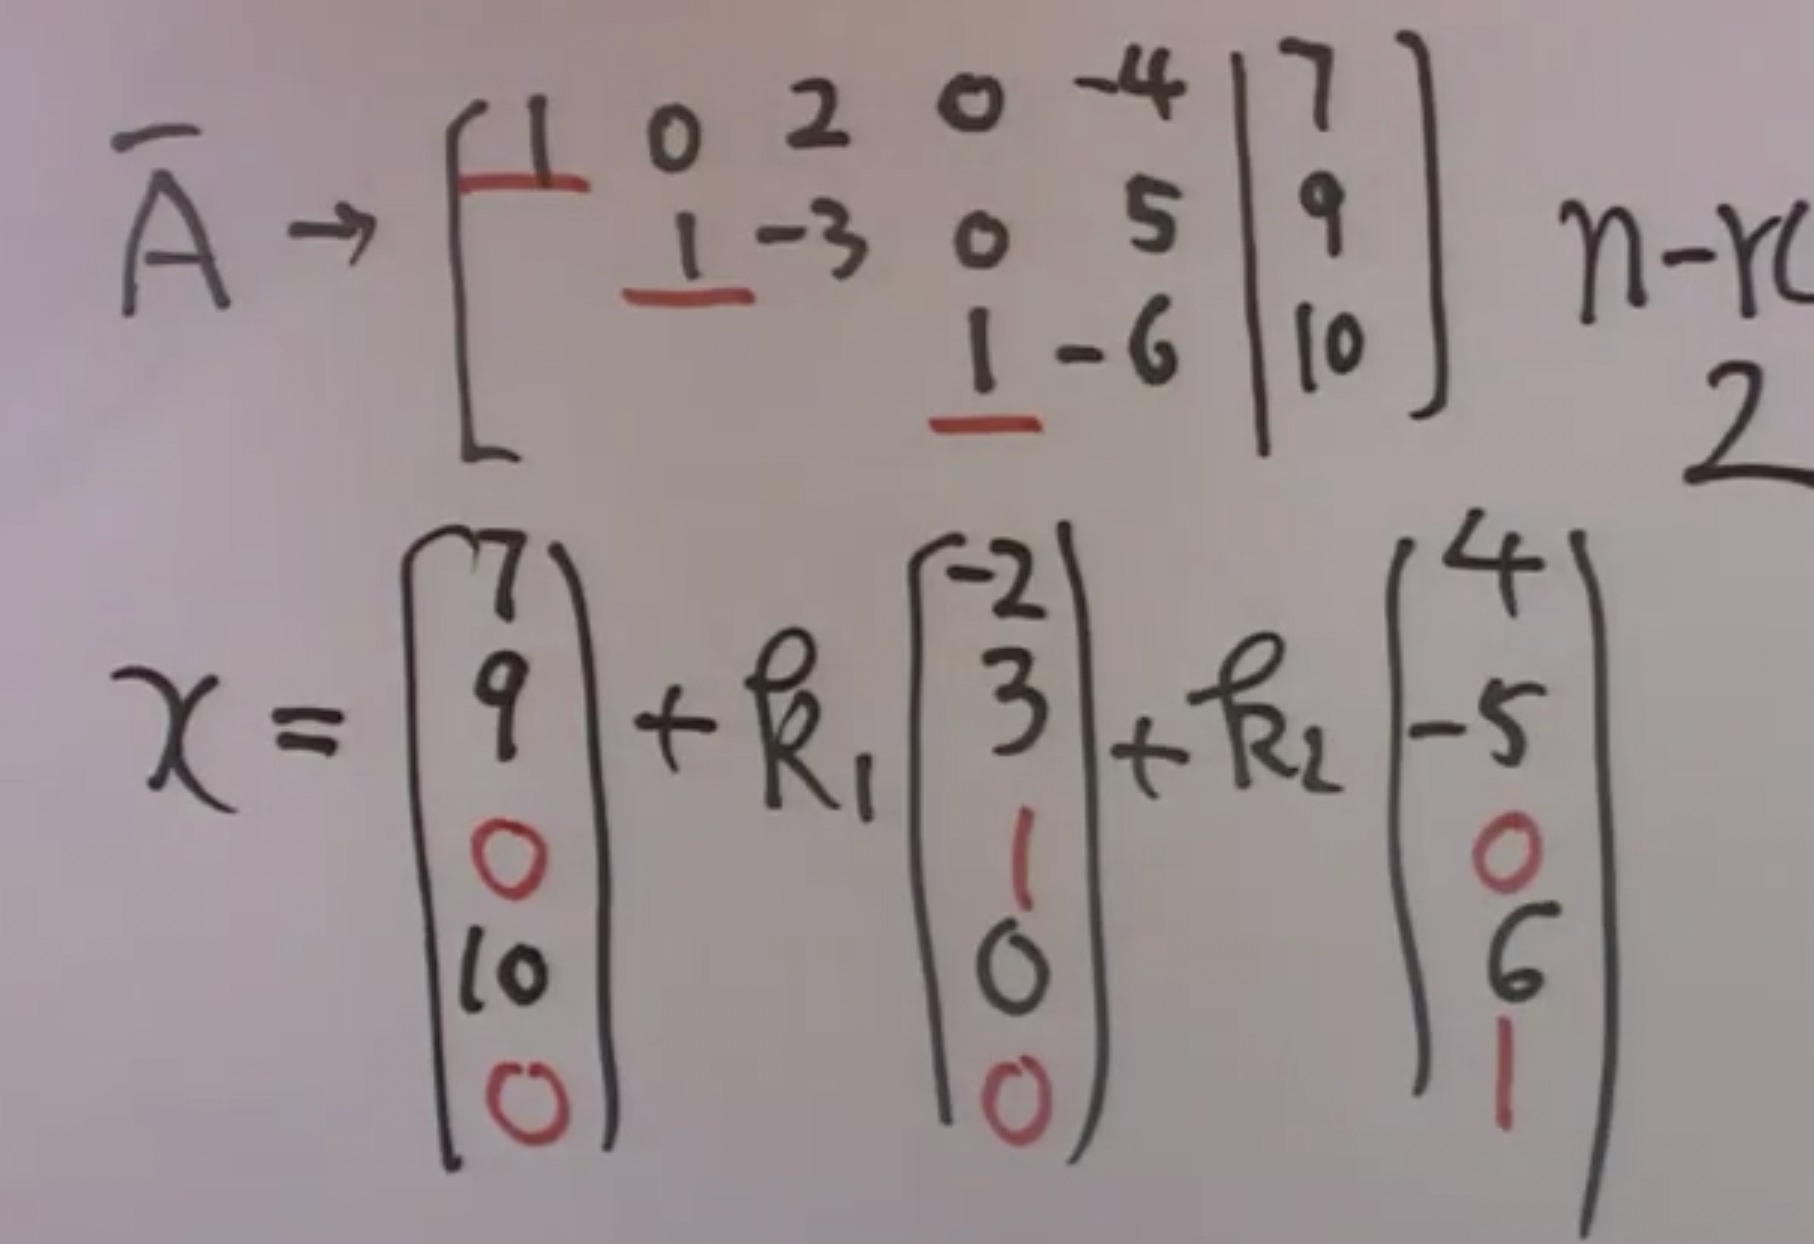 Ā → [ 1 0 2 0 -4 | 7 ]
1 -3 0 5 | 9
1 -6 | 10
n-r(
2
x = (7 9 0 10 0) + k₁ (-2 3 1 0 0) + k₂ (4 -5 0 6 1)